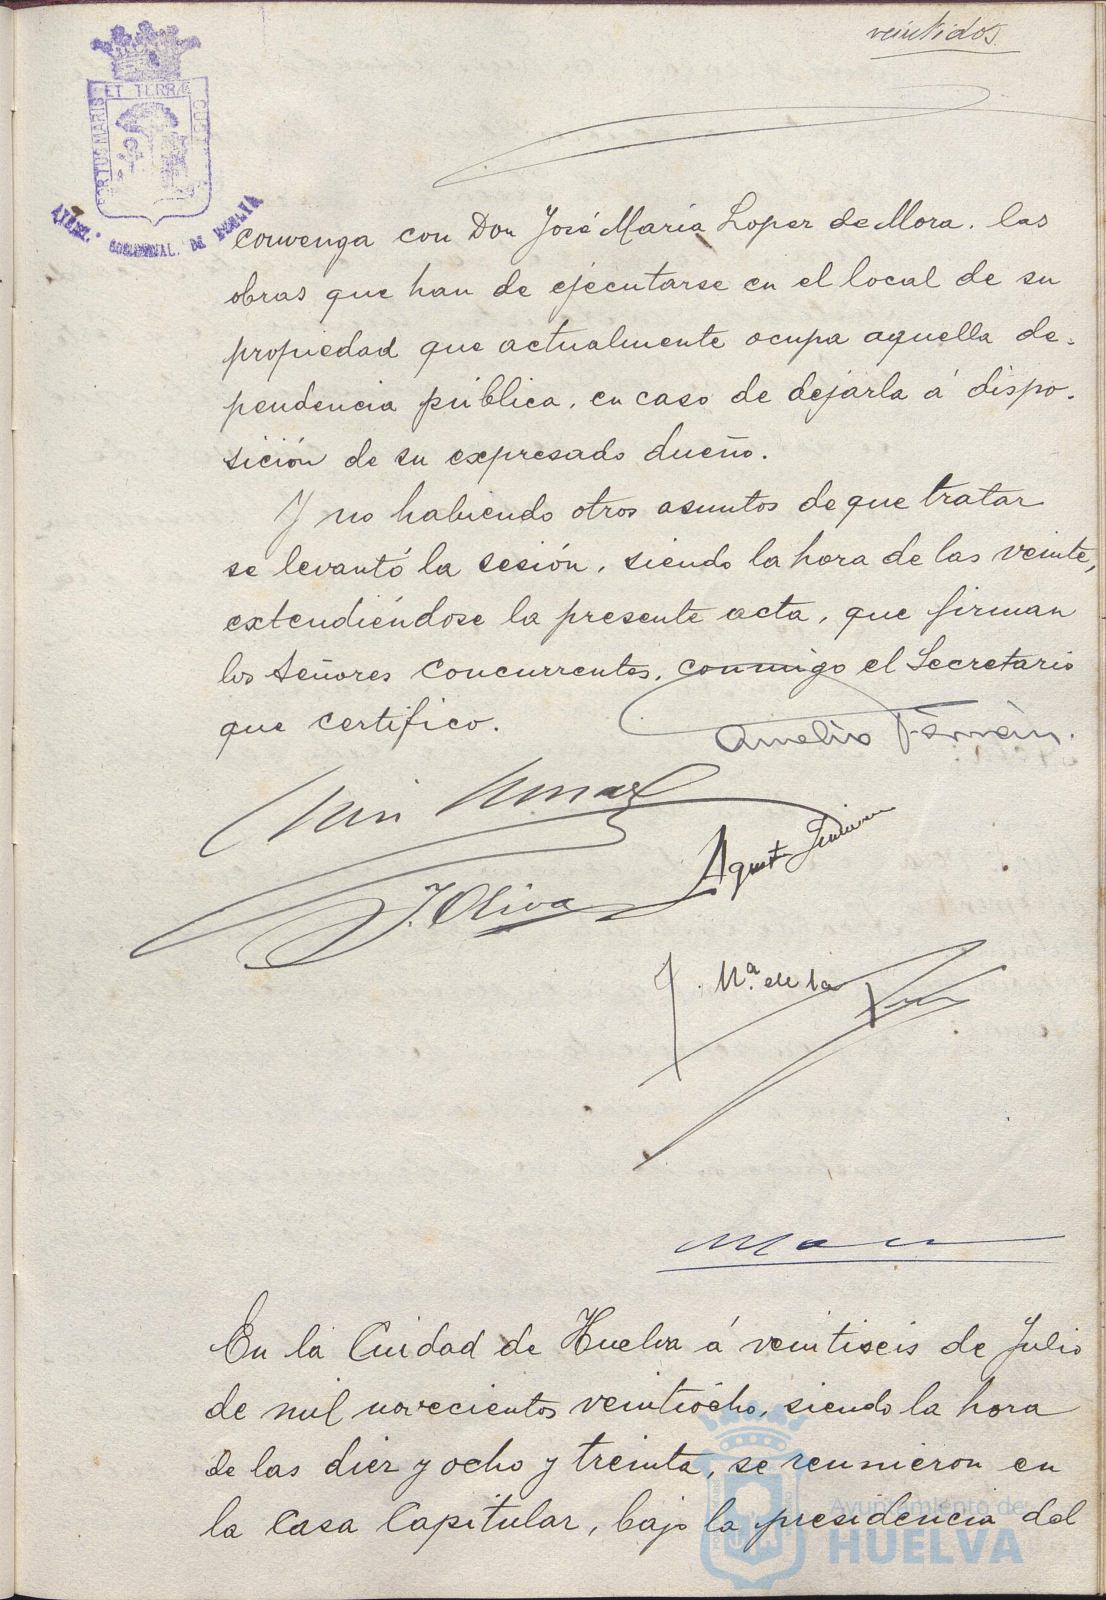 veintidos.
ET TERRÆ CUS
PORTUS MARIS
AYUNT. DE HUELVA
convenga con Don José María Lopez de Mora. las
obras que han de ejecutarse en el local de su
propiedad que actualmente ocupa aquella de-
pendencia pública, en caso de dejarla á dispo-
sición de su expresado dueño.
Y no habiendo otros asuntos de que tratar
se levantó la sesión, siendo la hora de las veinte,
extendiéndose la presente acta, que firman
los Señores concurrentes, conmigo el Secretario
que certifico.
Amelio
J. Oliva
J. Mª. de la
En la Cuidad de Huelva á veintiseis de Julio
de mil novecientos veintiocho, siendo la hora
de las diez y ocho y treinta, se reunieron en
la Casa Capitular, bajo la presidencia del
Ayuntamiento de
HUELVA